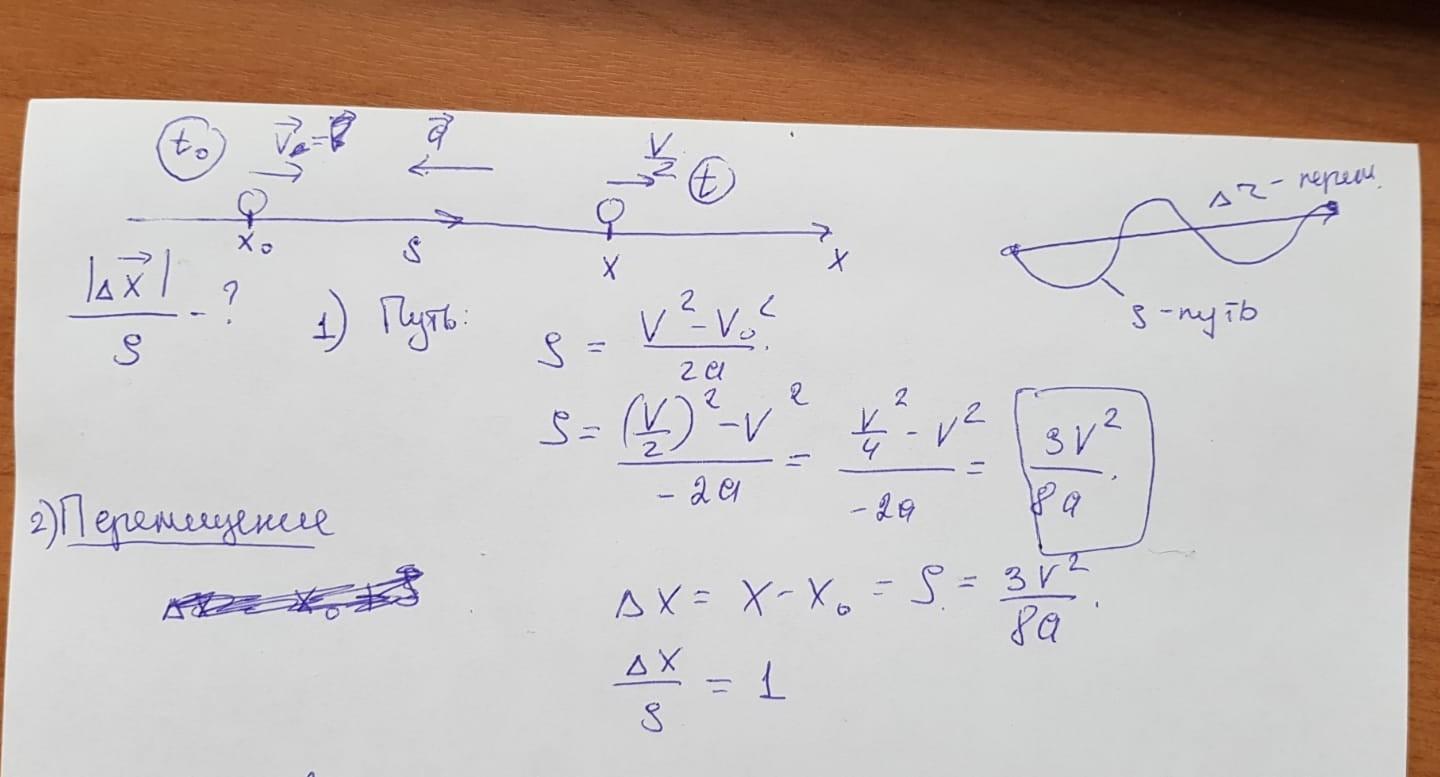 t₀ V⃗₀ = a⃗ V/2 t
x₀ S x x
Δr - перем.
S - путь
|Δx⃗|/S - ?
1) Путь:
S = (V² - V₀²)/2a.
S = ((V/2)² - V²)/(-2a) = (V²/4 - V²)/(-2a) = 3V²/8a.
2) Перемещение
Δx = x - x₀ = S = 3V²/8a.
Δx/S = 1